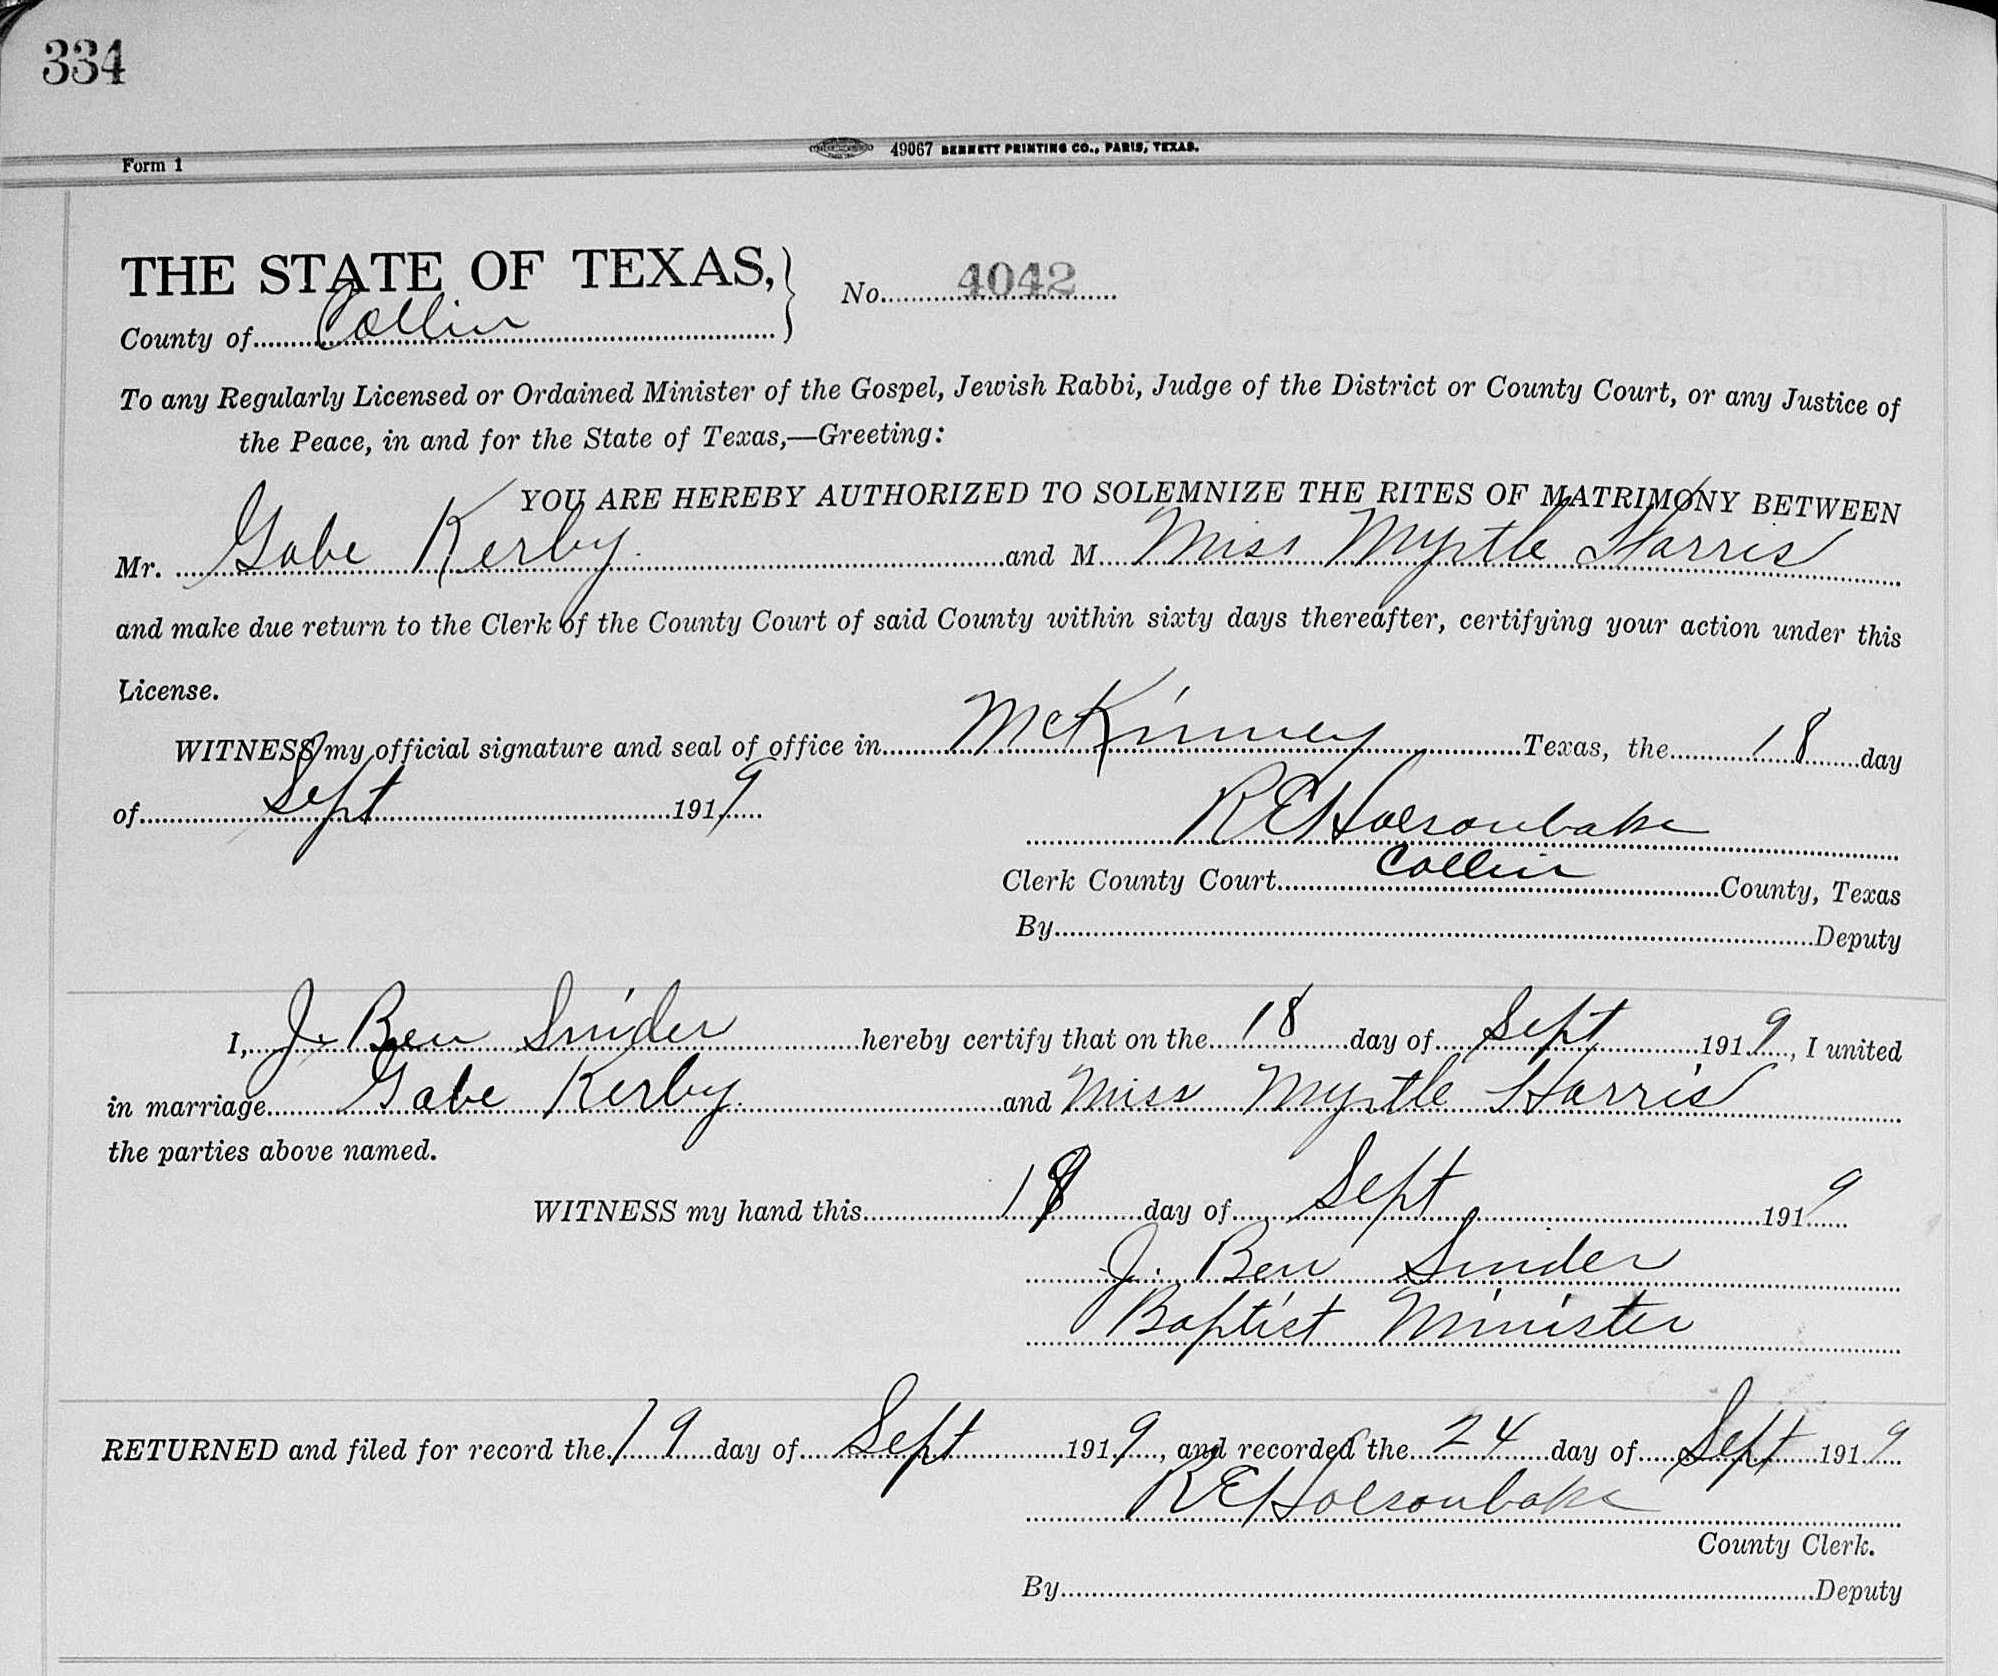 334
Form 1
49067 BENNETT PRINTING CO., PARIS, TEXAS.
THE STATE OF TEXAS,
No. 4042
County of Collin
To any Regularly Licensed or Ordained Minister of the Gospel, Jewish Rabbi, Judge of the District or County Court, or any Justice of
the Peace, in and for the State of Texas,—Greeting:
YOU ARE HEREBY AUTHORIZED TO SOLEMNIZE THE RITES OF MATRIMONY BETWEEN
Mr. Gabe Kerby and M Miss Myrtle Harris
and make due return to the Clerk of the County Court of said County within sixty days thereafter, certifying your action under this
License.
WITNESS my official signature and seal of office in McKinney Texas, the 18 day
of Sept 1919
R E Holsonbake
Clerk County Court Collin County, Texas
By Deputy
I, J. Ben Snider hereby certify that on the 18 day of Sept 1919, I united
in marriage Gabe Kerby and Miss Myrtle Harris
the parties above named.
WITNESS my hand this 18 day of Sept 1919
J. Ben Snider
Baptist Minister
RETURNED and filed for record the 19 day of Sept 1919, and recorded the 24 day of Sept 1919
R E Holsonbake
County Clerk.
By Deputy